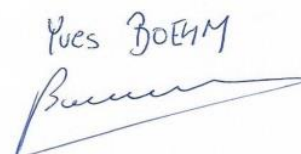 Yves BOEHM